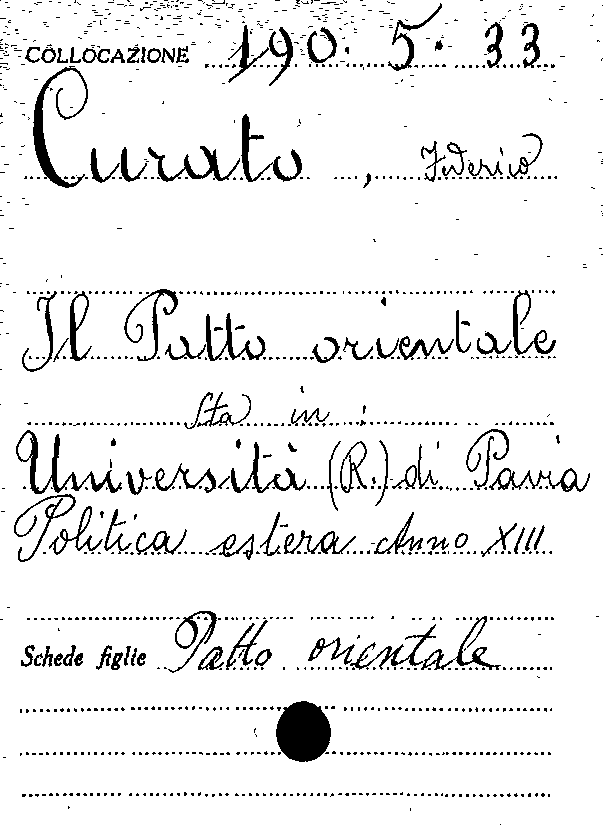 COLLOCAZIONE 190. 5. 33
Curato, Federico
Il Patto orientale
Sta in:
Università (R.) di Pavia
Politica estera Anno XIII
Schede figlie Patto orientale